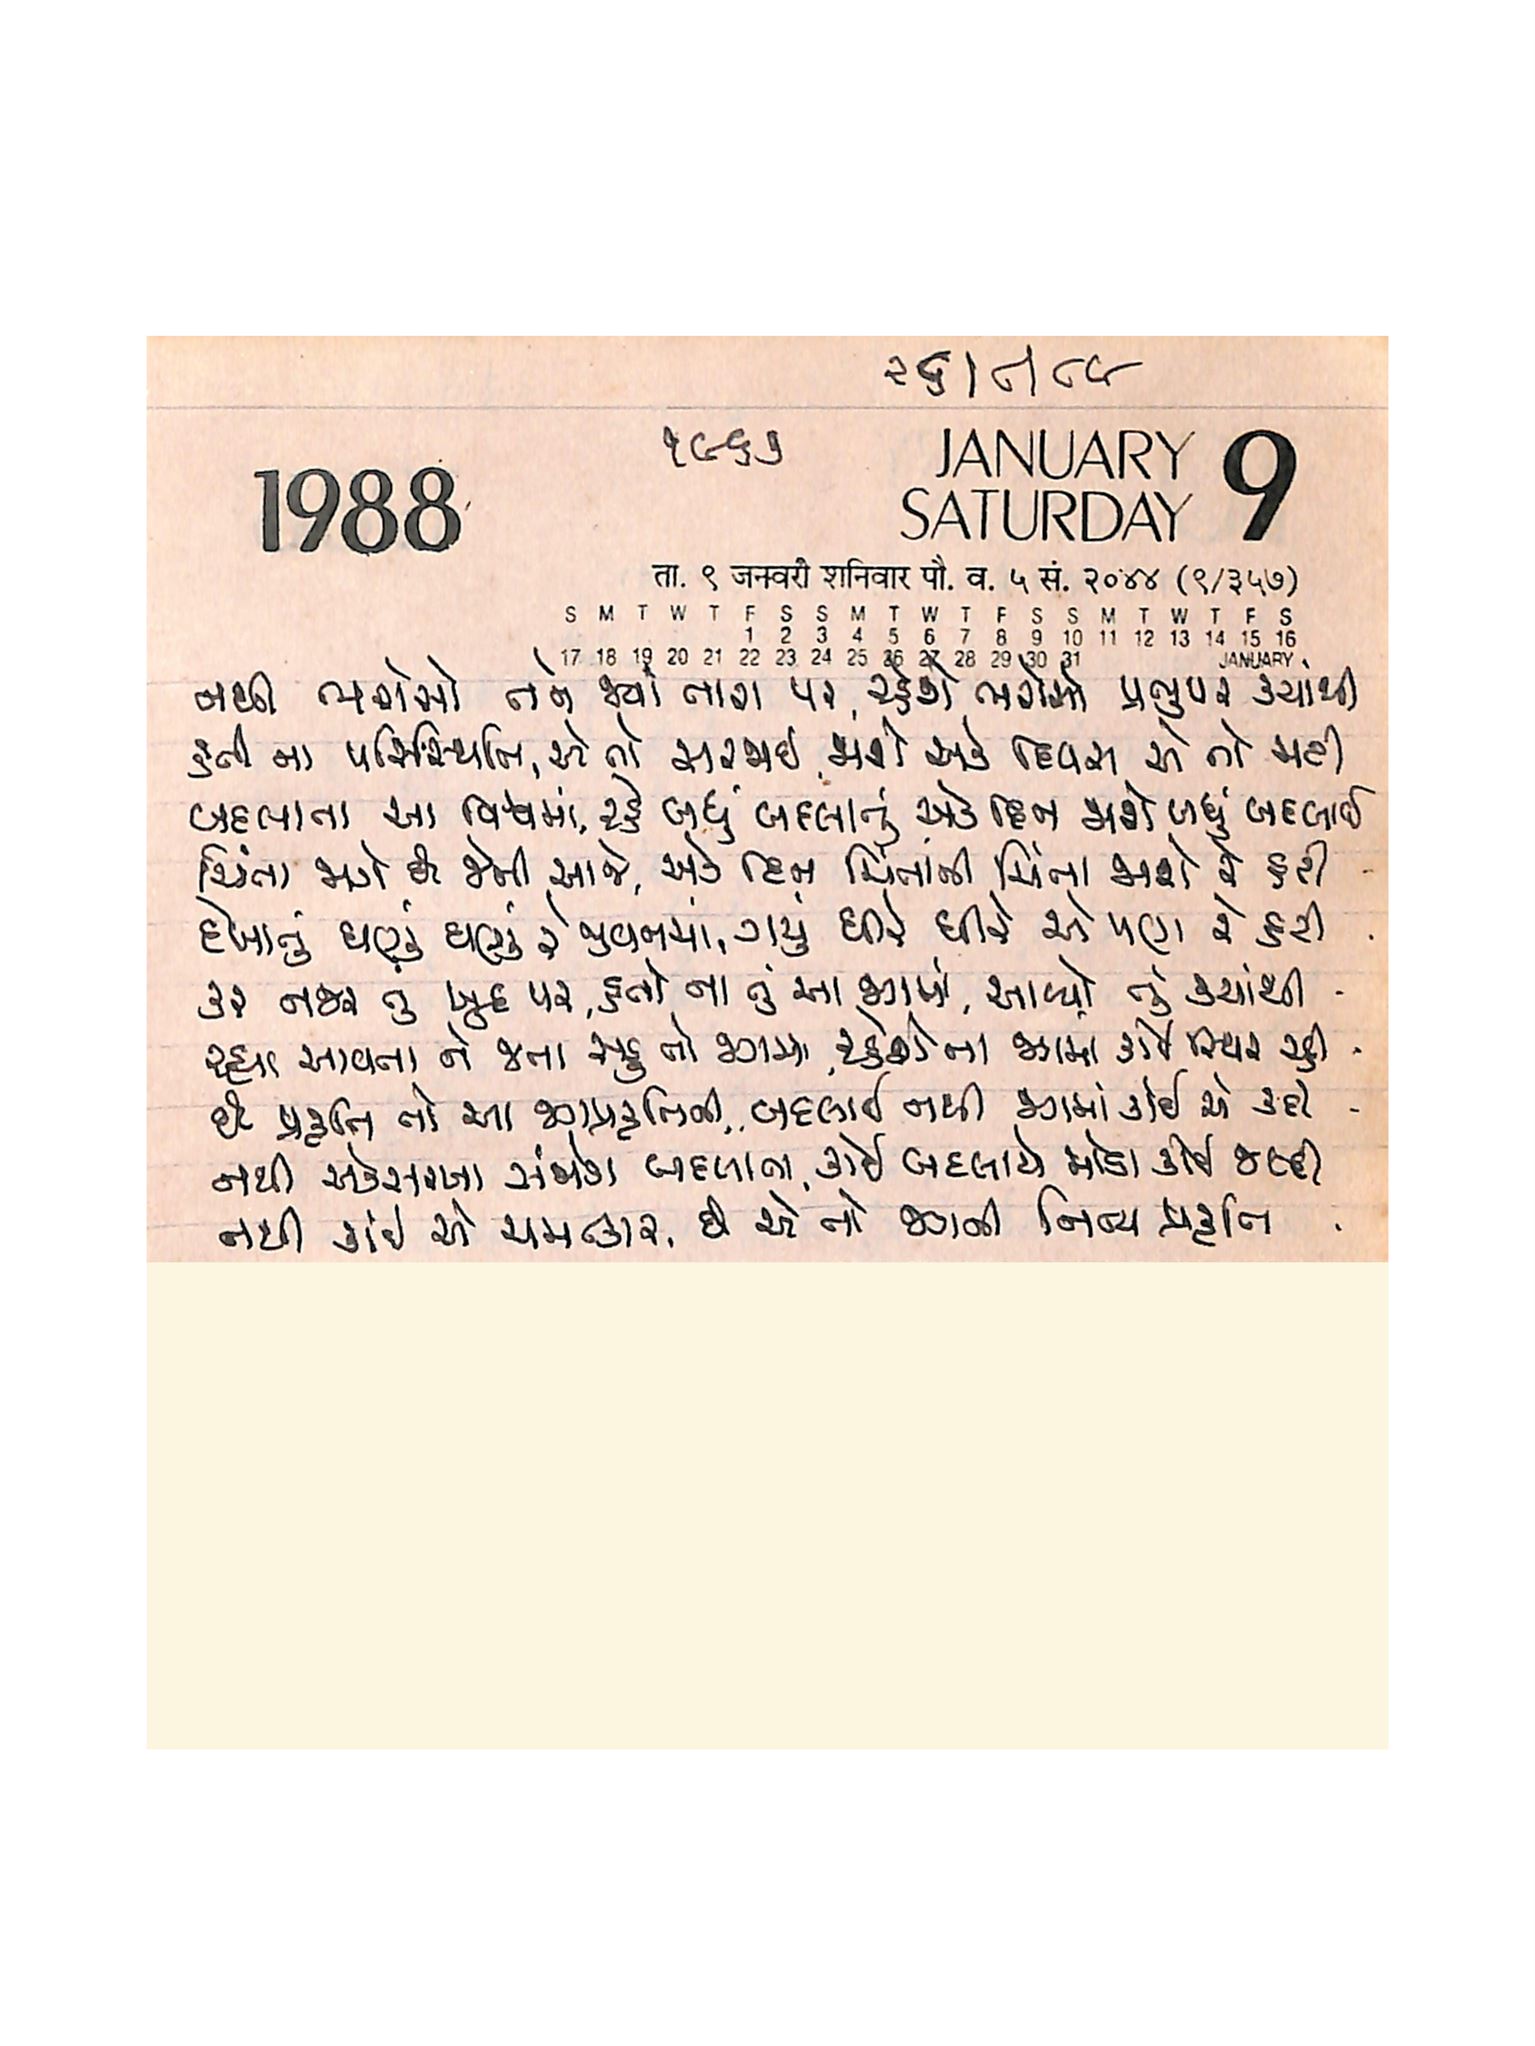 ૨૬।૮।૮૯
૧૯૬૭
1988
JANUARY 9
SATURDAY
ता. ९ जनवरी शनिवार पौ. व. ५ सं. २०४४ (९/३५७)
S M T W T F S S M T W T F S S M T W T F S
1 2 3 4 5 6 7 8 9 10 11 12 13 14 15 16
17 18 19 20 21 22 23 24 25 26 27 28 29 30 31 JANUARY
નથી ભરોસો તને જ્યાં તારા પર, રહેશે ભરોસો પ્રભુપર ક્યાંથી
હતી ના પરિસ્થિતિ, એ તો સરજાઈ, જાશે એક દિવસ એ તો મટી
બદલાતા આ વિશ્વમાં, રહે બધું બદલાતું, એક દિન જાશે બધું બદલાઈ
ચિંતા જાગે છે જેની આજે, એક દિન ચિંતાની ચિંતા જાશે રે હટી
દેખાતું ઘણું ઘણું રે જીવનમાં, ગયું ધીરે ધીરે એ પણ રે હટી
કર નજર તું ખુદ પર, હતો ના તું આ જગમાં, આવ્યો તું ક્યાંથી
રહ્યા આવતા ને જતા સહુ તો જગમાં, રહેશે ના જગમાં કોઈ સ્થિર રહી
છે પ્રકૃતિ તો આ જગપ્રકૃતિની, બદલાઈ નથી જગમાં કોઈ એ કદી
નથી એકસરખા સંજોગ બદલાતા, કોઈ બદલાયે મોડા કોઈ જલ્દી
નથી કાંઈ એ ચમત્કાર, છે એ તો જગની નિત્ય પ્રકૃતિ